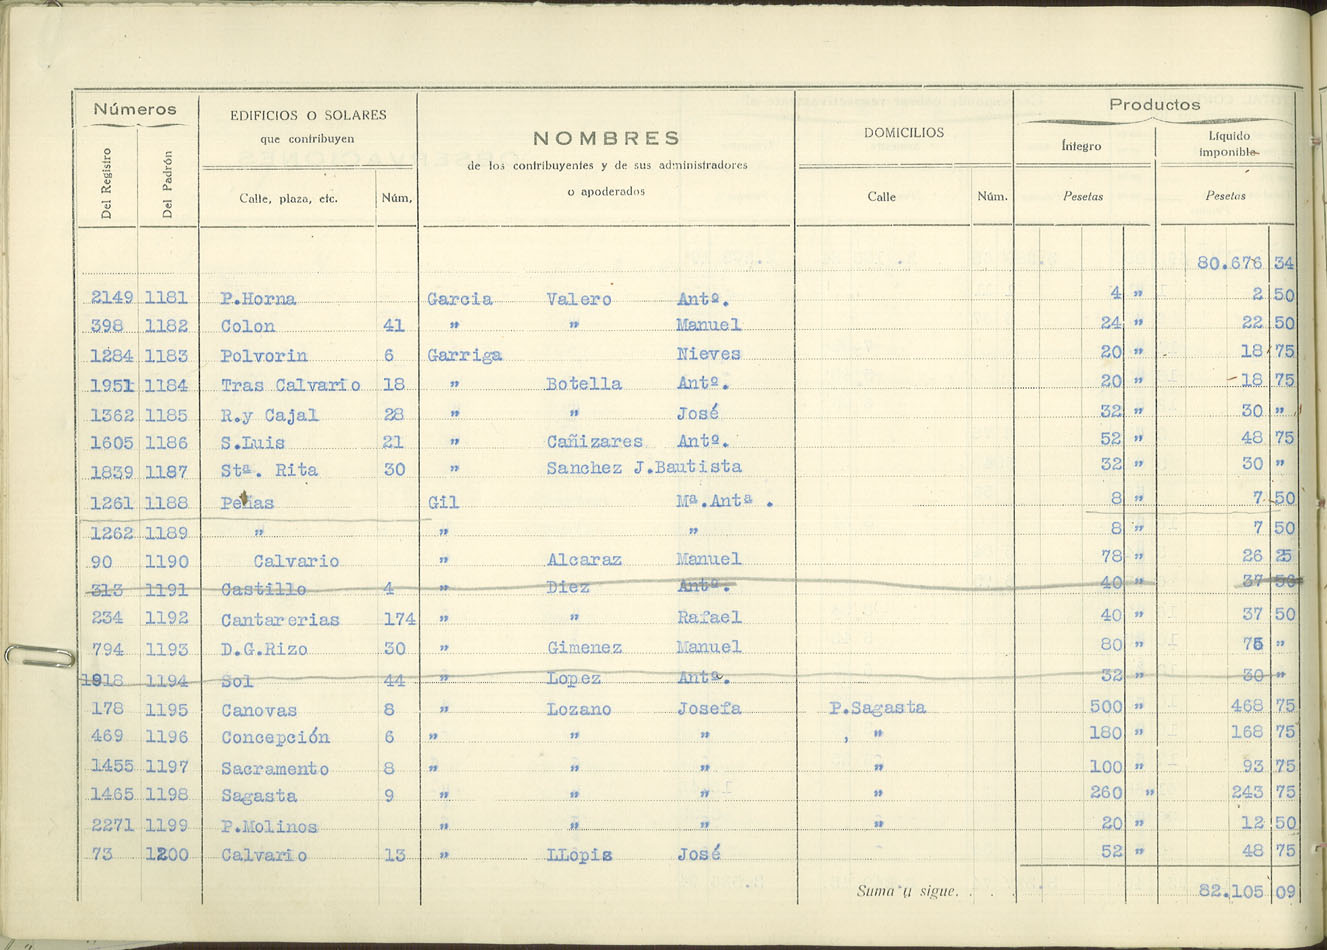 Números
EDIFICIOS O SOLARES
que contribuyen
NOMBRES
de los contribuyentes y de sus administradores
o apoderados
DOMICILIOS
Productos
Del Registro
Del Padrón
Calle, plaza, etc.
Núm.
Calle
Núm.
Íntegro
Líquido
imponible
Pesetas
Pesetas
80.676 34
2149 1181 P.Horna Garcia Valero Antº. 4 " 2 50
398 1182 Colon 41 " " Manuel 24 " 22 50
1284 1183 Polvorin 6 Garriga Nieves 20 " 18 75
1951 1184 Tras Calvario 18 " Botella Antº. 20 " 18 75
1362 1185 R.y Cajal 28 " " José 32 " 30 "
1605 1186 S.Luis 21 " Cañizares Antº. 52 " 48 75
1839 1187 Stª. Rita 30 " Sanchez J.Bautista 32 " 30 "
1261 1188 Peñas Gil Mª.Antª . 8 " 7 50
1262 1189 " " " 8 " 7 50
90 1190 Calvario " Alcaraz Manuel 78 " 26 25
313 1191 Castillo 4 " Diez Antº. 40 " 37 50
234 1192 Cantarerias 174 " " Rafael 40 " 37 50
794 1193 D.G.Rizo 30 " Gimenez Manuel 80 " 75 "
1918 1194 Sol 44 " Lopez Antª. 32 " 30 "
178 1195 Canovas 8 " Lozano Josefa P.Sagasta 500 " 468 75
469 1196 Concepción 6 " " " , " 180 " 168 75
1455 1197 Sacramento 8 " " " " 100 " 93 75
1465 1198 Sagasta 9 " " " " 260 " 243 75
2271 1199 P.Molinos " " " " 20 " 12 50
73 1200 Calvario 13 " LLopis José 52 " 48 75
Suma y sigue. . . . 82.105 09